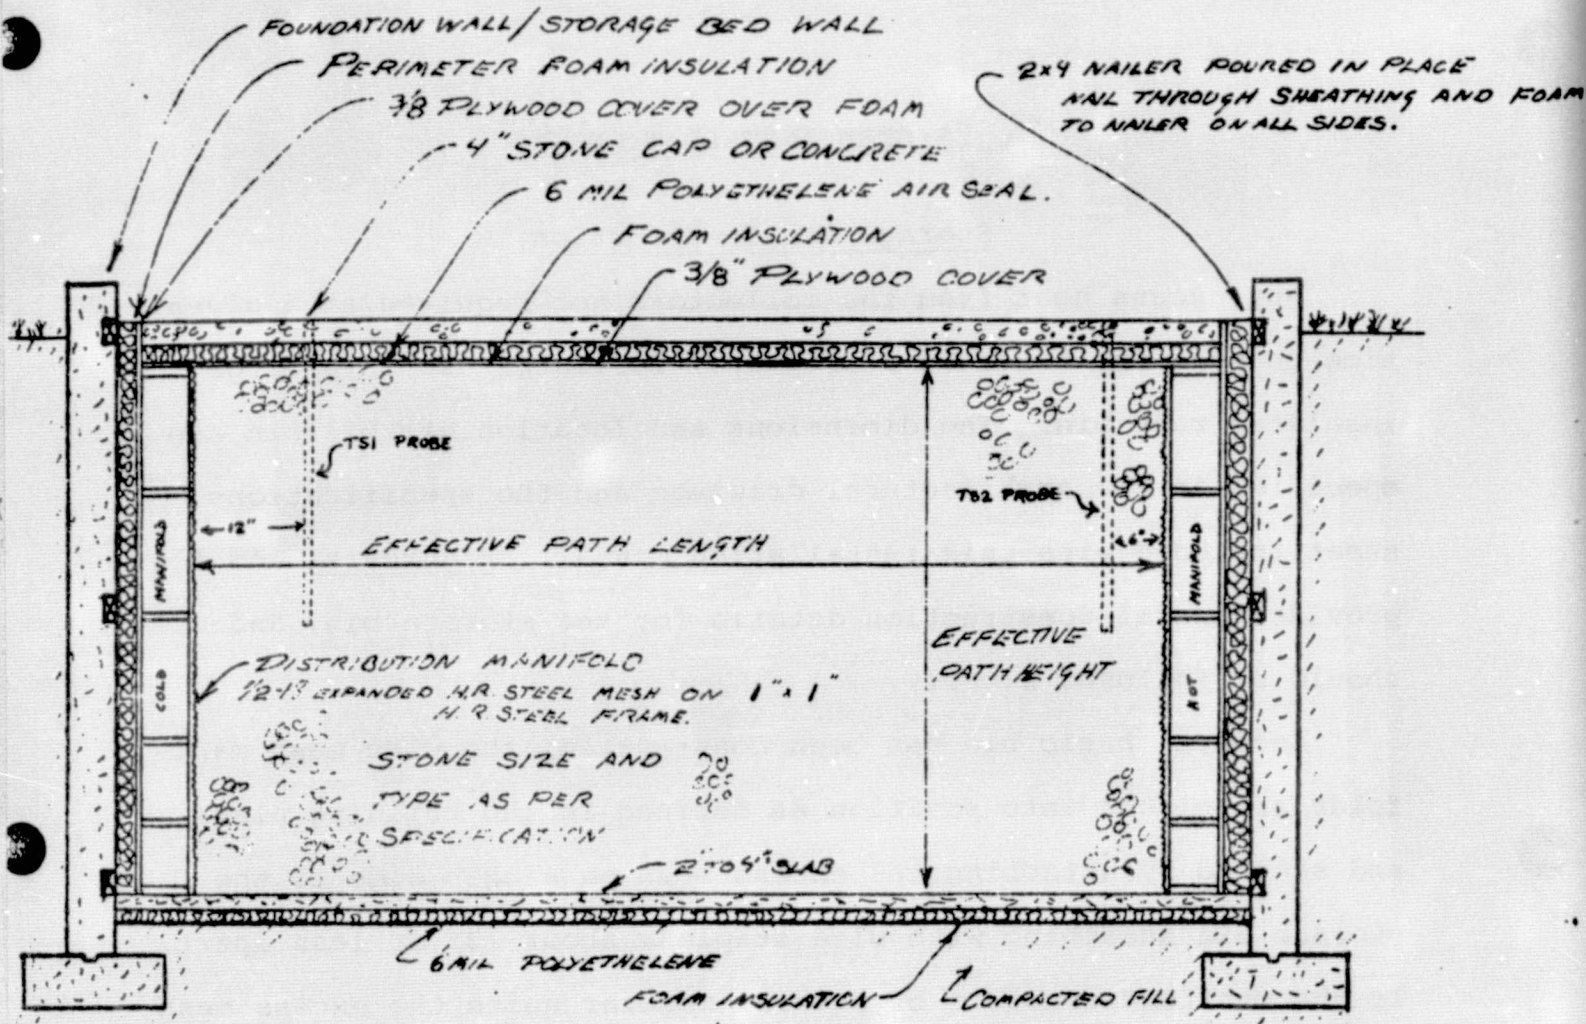 FOUNDATION WALL/STORAGE BED WALL
PERIMETER FOAM INSULATION
3/8 PLYWOOD COVER OVER FOAM
4" STONE CAP OR CONCRETE
6 MIL POLYETHELENE AIR SEAL.
FOAM INSULATION
3/8" PLYWOOD COVER
2x4 NAILER POURED IN PLACE
NAIL THROUGH SHEATHING AND FOAM
TO NAILER ON ALL SIDES.
TS1 PROBE
TS2 PROBE
12"
6"
EFFECTIVE PATH LENGTH
MANIFOLD
COLD
MANIFOLD
HOT
EFFECTIVE
PATH HEIGHT
DISTRIBUTION MANIFOLD
EXPANDED H.R. STEEL MESH ON 1" x 1"
H.R. STEEL FRAME.
STONE SIZE AND
TYPE AS PER
SPECIFICATION
2" TO 4" SLAB
6 MIL POLYETHELENE
FOAM INSULATION
COMPACTED FILL